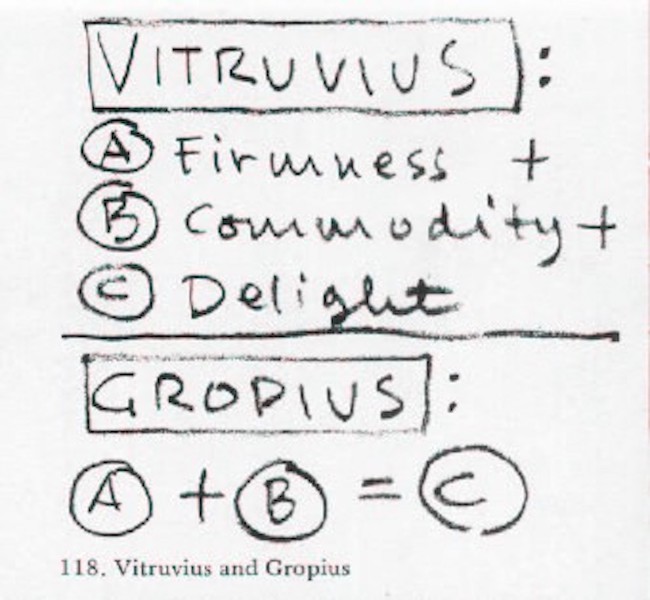 VITRUVIUS:
A Firmness +
B Commodity +
C Delight
GROPIUS:
A + B = C
118. Vitruvius and Gropius